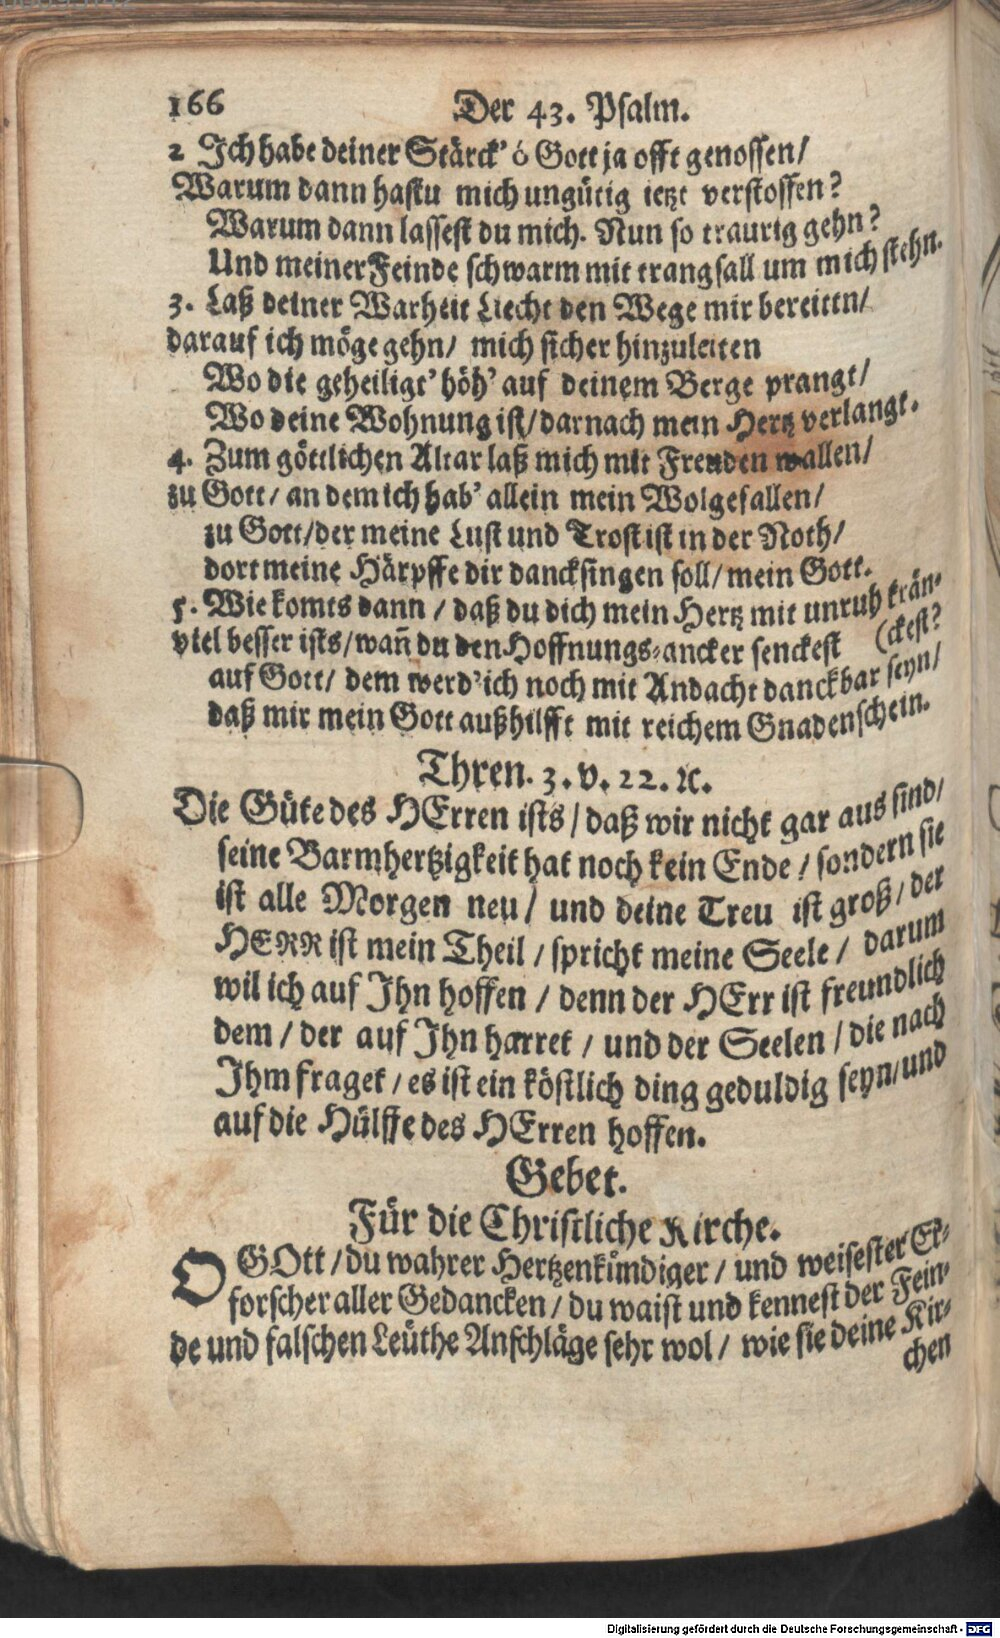 166 Der 43. Psalm.
2 Ich habe deiner Stärck' ô Gott ja offt genossen/
Warum dann hastu mich ungütig ietzt verstossen?
Warum dann lassest du mich. Nun so traurig gehn?
Und meiner Feinde schwarm mit trangsall um mich stehn.
3. Laß deiner Warheit Liecht den Wege mir bereiten/
darauf ich möge gehn/ mich sicher hinzuleiten
Wo die geheiligt' höh' auf deinem Berge prangt/
Wo deine Wohnung ist/ darnach mein Hertz verlangt.
4. Zum göttlichen Altar laß mich mit Freuden wallen/
zu Gott/ an dem ich hab' allein mein Wolgefallen/
zu Gott/ der meine Lust und Trost ist in der Noth/
dort meine Härpffe dir dancksingen soll/ mein Gott.
5. Wie komts dann / daß du dich mein Hertz mit unruh krän-
viel besser ists/ wañ du den Hoffnungs-ancker senckest (ckest?
auf Gott/ dem werd' ich noch mit Andacht danckbar seyn/
daß mir mein Gott außhilfft mit reichem Gnadenschein.
Thren. 3. v. 22. ꝛc.
Die Güte des HErren ists / daß wir nicht gar aus sind/
seine Barmhertzigkeit hat noch kein Ende / sondern sie
ist alle Morgen neu/ und deine Treu ist groß/ der
HERR ist mein Theil / spricht meine Seele / darum
wil ich auf Ihn hoffen / denn der HErr ist freundlich
dem / der auf Ihn harret / und der Seelen / die nach
Ihm fraget / es ist ein köstlich ding geduldig seyn/ und
auf die Hülffe des HErren hoffen.
Gebet.
Für die Christliche Kirche.
O GOtt / du wahrer Hertzenkündiger / und weisester Er-
forscher aller Gedancken / du waist und kennest der Fein-
de und falschen Leüthe Anschläge sehr wol / wie sie deine Kir-
chen
Digitalisierung gefördert durch die Deutsche Forschungsgemeinschaft - DFG